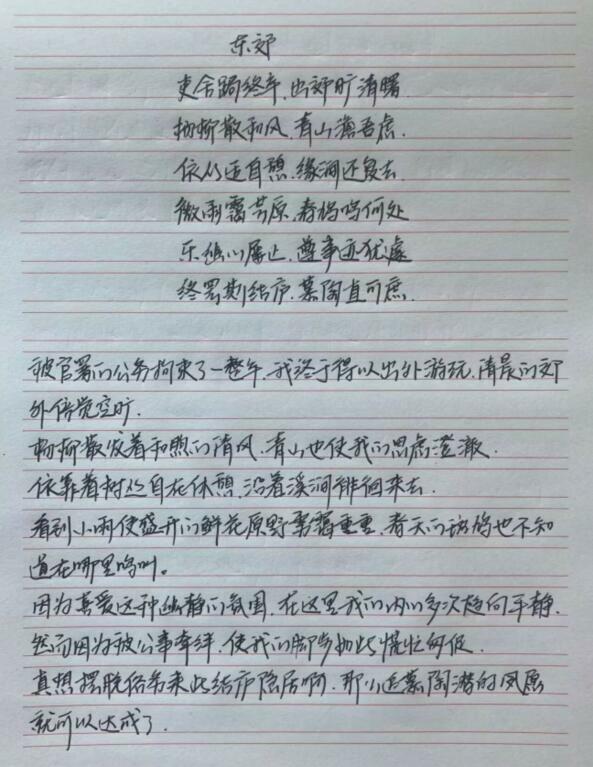 东郊
吏舍跼终年,出郊旷清曙
杨柳散和风,青山澹吾虑.
依丛适自憩,缘涧还复去
微雨霭芳原,春鸠鸣何处
乐幽心屡止,遵事迹犹遽
终罢期结庐,慕陶直可庶.
被官署的公务拘束了一整年,我终于得以出外游玩,清晨的郊
外倍觉空旷.
杨柳散发着和煦的清风,青山也使我的思虑澄澈.
依靠着树丛自在休憩,沿着溪涧徘徊来去.
看到小雨使盛开的鲜花原野雾霭重重,春天的斑鸠也不知
道在哪里鸣叫。
因为喜爱这种幽静的氛围,在这里我的内心多次趋向平静.
然而因为被公事牵绊,使我的脚步如此慌忙匆促.
真想摆脱俗务来此结庐隐居啊,那个追慕陶潜的夙愿
就可以达成了.